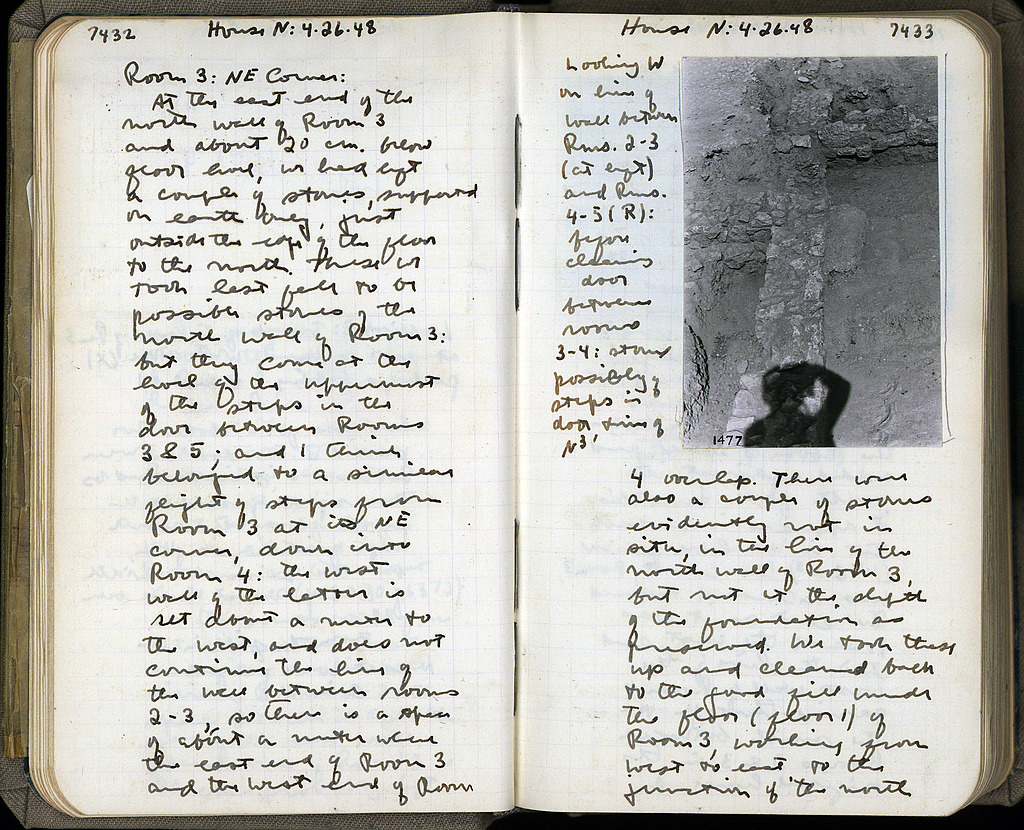 7432
House N: 4.26.48
Room 3: NE Corner:
At the east end of the
north wall of Room 3
and about 20 cm. below
floor level, we had left
a couple of stones, supported
on earth only, just
outside the edge of the floor
to the north. These we
took last year to be
possible stones of the
north wall of Room 3:
but they come at the
level of the uppermost
of the steps in the
door between Rooms
3 & 5; and I think
belonged to a similar
flight of steps from
Room 3 at its NE
corner, down into
Room 4: the west
wall of the latter is
set about a meter to
the west, and does not
continue the line of
the wall between rooms
2-3, so there is a space
of about a meter where
the east end of Room 3
and the west end of Room
House N: 4.26.48
7433
Looking W
on line of
wall between
Rms. 2-3
(at left)
and Rms.
4-5 (R):
before
cleaning
door
between
rooms
3-4: stones
possibly of
steps in
door, time of
N3,
1477
4 overlap. There were
also a couple of stones
evidently not in
situ, in the line of the
north wall of Room 3,
but not at the depth
of the foundation as
preserved. We took these
up and cleaned back
to the good fill under
the floor (floor 1) of
Room 3, working from
west to east to the
junction of the north